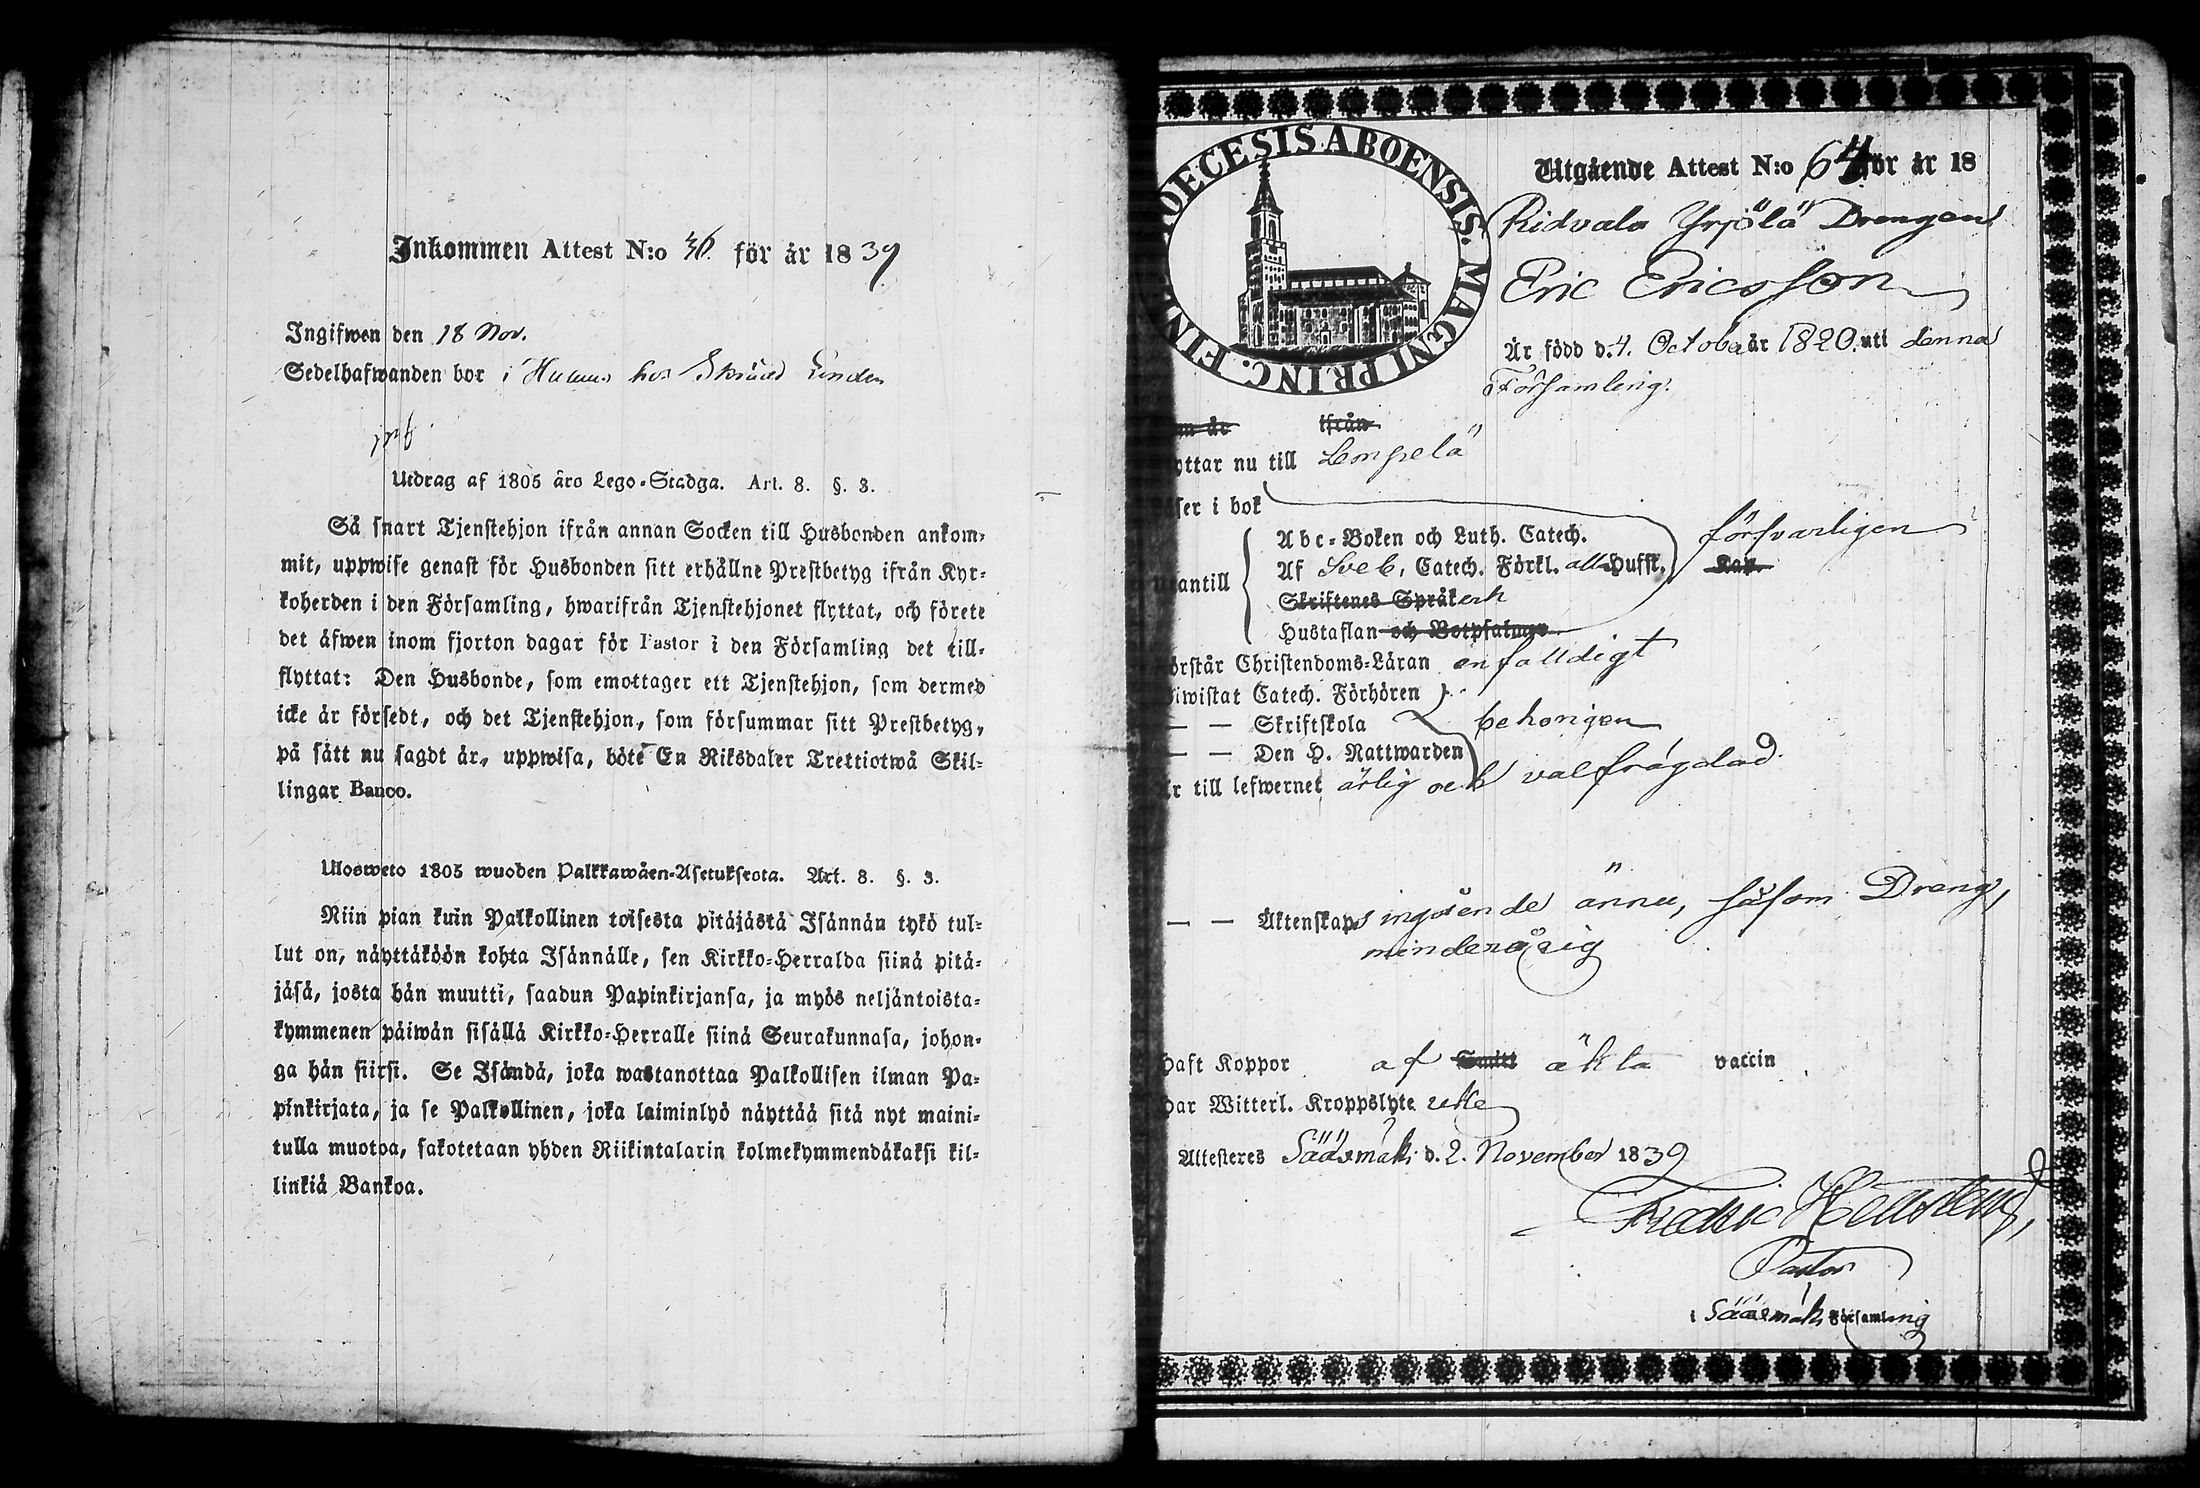 Inkommen Attest N:o 46. för år 1839
Ingifwen den 18 Nov.
Sedelhafwanden bor i Humus hos Linden
Utdrag af 1805 års Lego-Stadga. Art. 8. §. 3.
Så snart Tjenstehjon ifrån annan Socken till Husbonden ankom-
mit, uppwise genast för Husbonden sitt erhållne Prestbetyg ifrån Kyr-
koherden i den Församling, hwarifrån Tjenstehjonet flyttat, och förete
det äfwen inom fjorton dagar för Pastor i den Församling det till-
flyttat: Den Husbonde, som emottager ett Tjenstehjon, som dermed
icke är försedt, och det Tjenstehjon, som försummar sitt Prestbetyg,
på sätt nu sagdt är, uppwisa, böte En Riksdaler Trettiotwå Skil-
lingar Banco.
Ulosweto 1805 wuoden Palkkawäen-Asetuksesta. Art. 8. §. 3.
Niin pian kuin Palkollinen toisesta pitäjästä Isännän tykö tul-
lut on, näyttäköön kohta Isännälle, sen Kirkko-Herralda siinä pitä-
jäsä, josta hän muutti, saadun Papinkirjansa, ja myös neljäntoista-
kymmenen päiwän sisällä Kirkko-Herralle siinä Seurakunnasa, johon-
ga hän siirsi. Se Isändä, joka wastanottaa Palkollisen ilman Pa-
pinkirjata, ja se Palkollinen, joka laiminlyö näyttää sitä nyt maini-
tulla muotoa, sakotetaan yhden Riikintalarin kolmekymmendäkaksi kil-
linkiä Bankoa.
DIOECESIS ABOENSIS. MAGNI PRINC. FINL
Utgående Attest N:o 64 för år 18
Ridvala Yrjölä Drengen
Eric Ericsson
Är född d. 4. October år 1820. uti denna
Församling.
en är ifrån
yttar nu till Lempelä
äser i bok
Abc-Boken och Luth. Catech. försvarligen
utantill Af Sveb. Catech. Förkl. alla Hufst. Kap.
Skriftenes Språk och
Hustaflan och Botpsalmer
örstår Christendoms-Läran enfalldigt
iwistat Catech. Förhören
— — Skriftskola behörigen
— — Den H. Nattwarden
är till lefwernet ärlig och välfrägdad.
— — Äktenskaps ingående ännu, såsom Dreng,
minderårig
haft Koppor af Smitt äkta vaccin
har Witterl. Kroppslyte icke
Attesteres Sääxmäki d. 2. November 1839
Fredric
Pastor
i Sääxmäki Församling